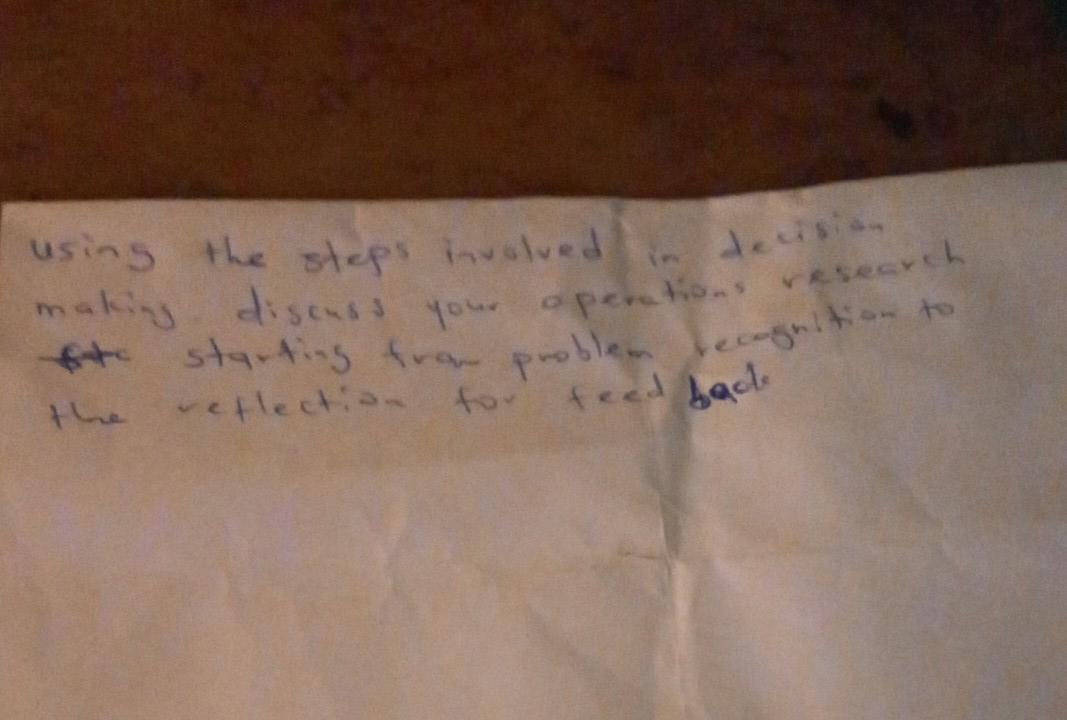 using the steps involved in decision
making. discuss your operations research
starting from problem recognition to
the reflection for feed back